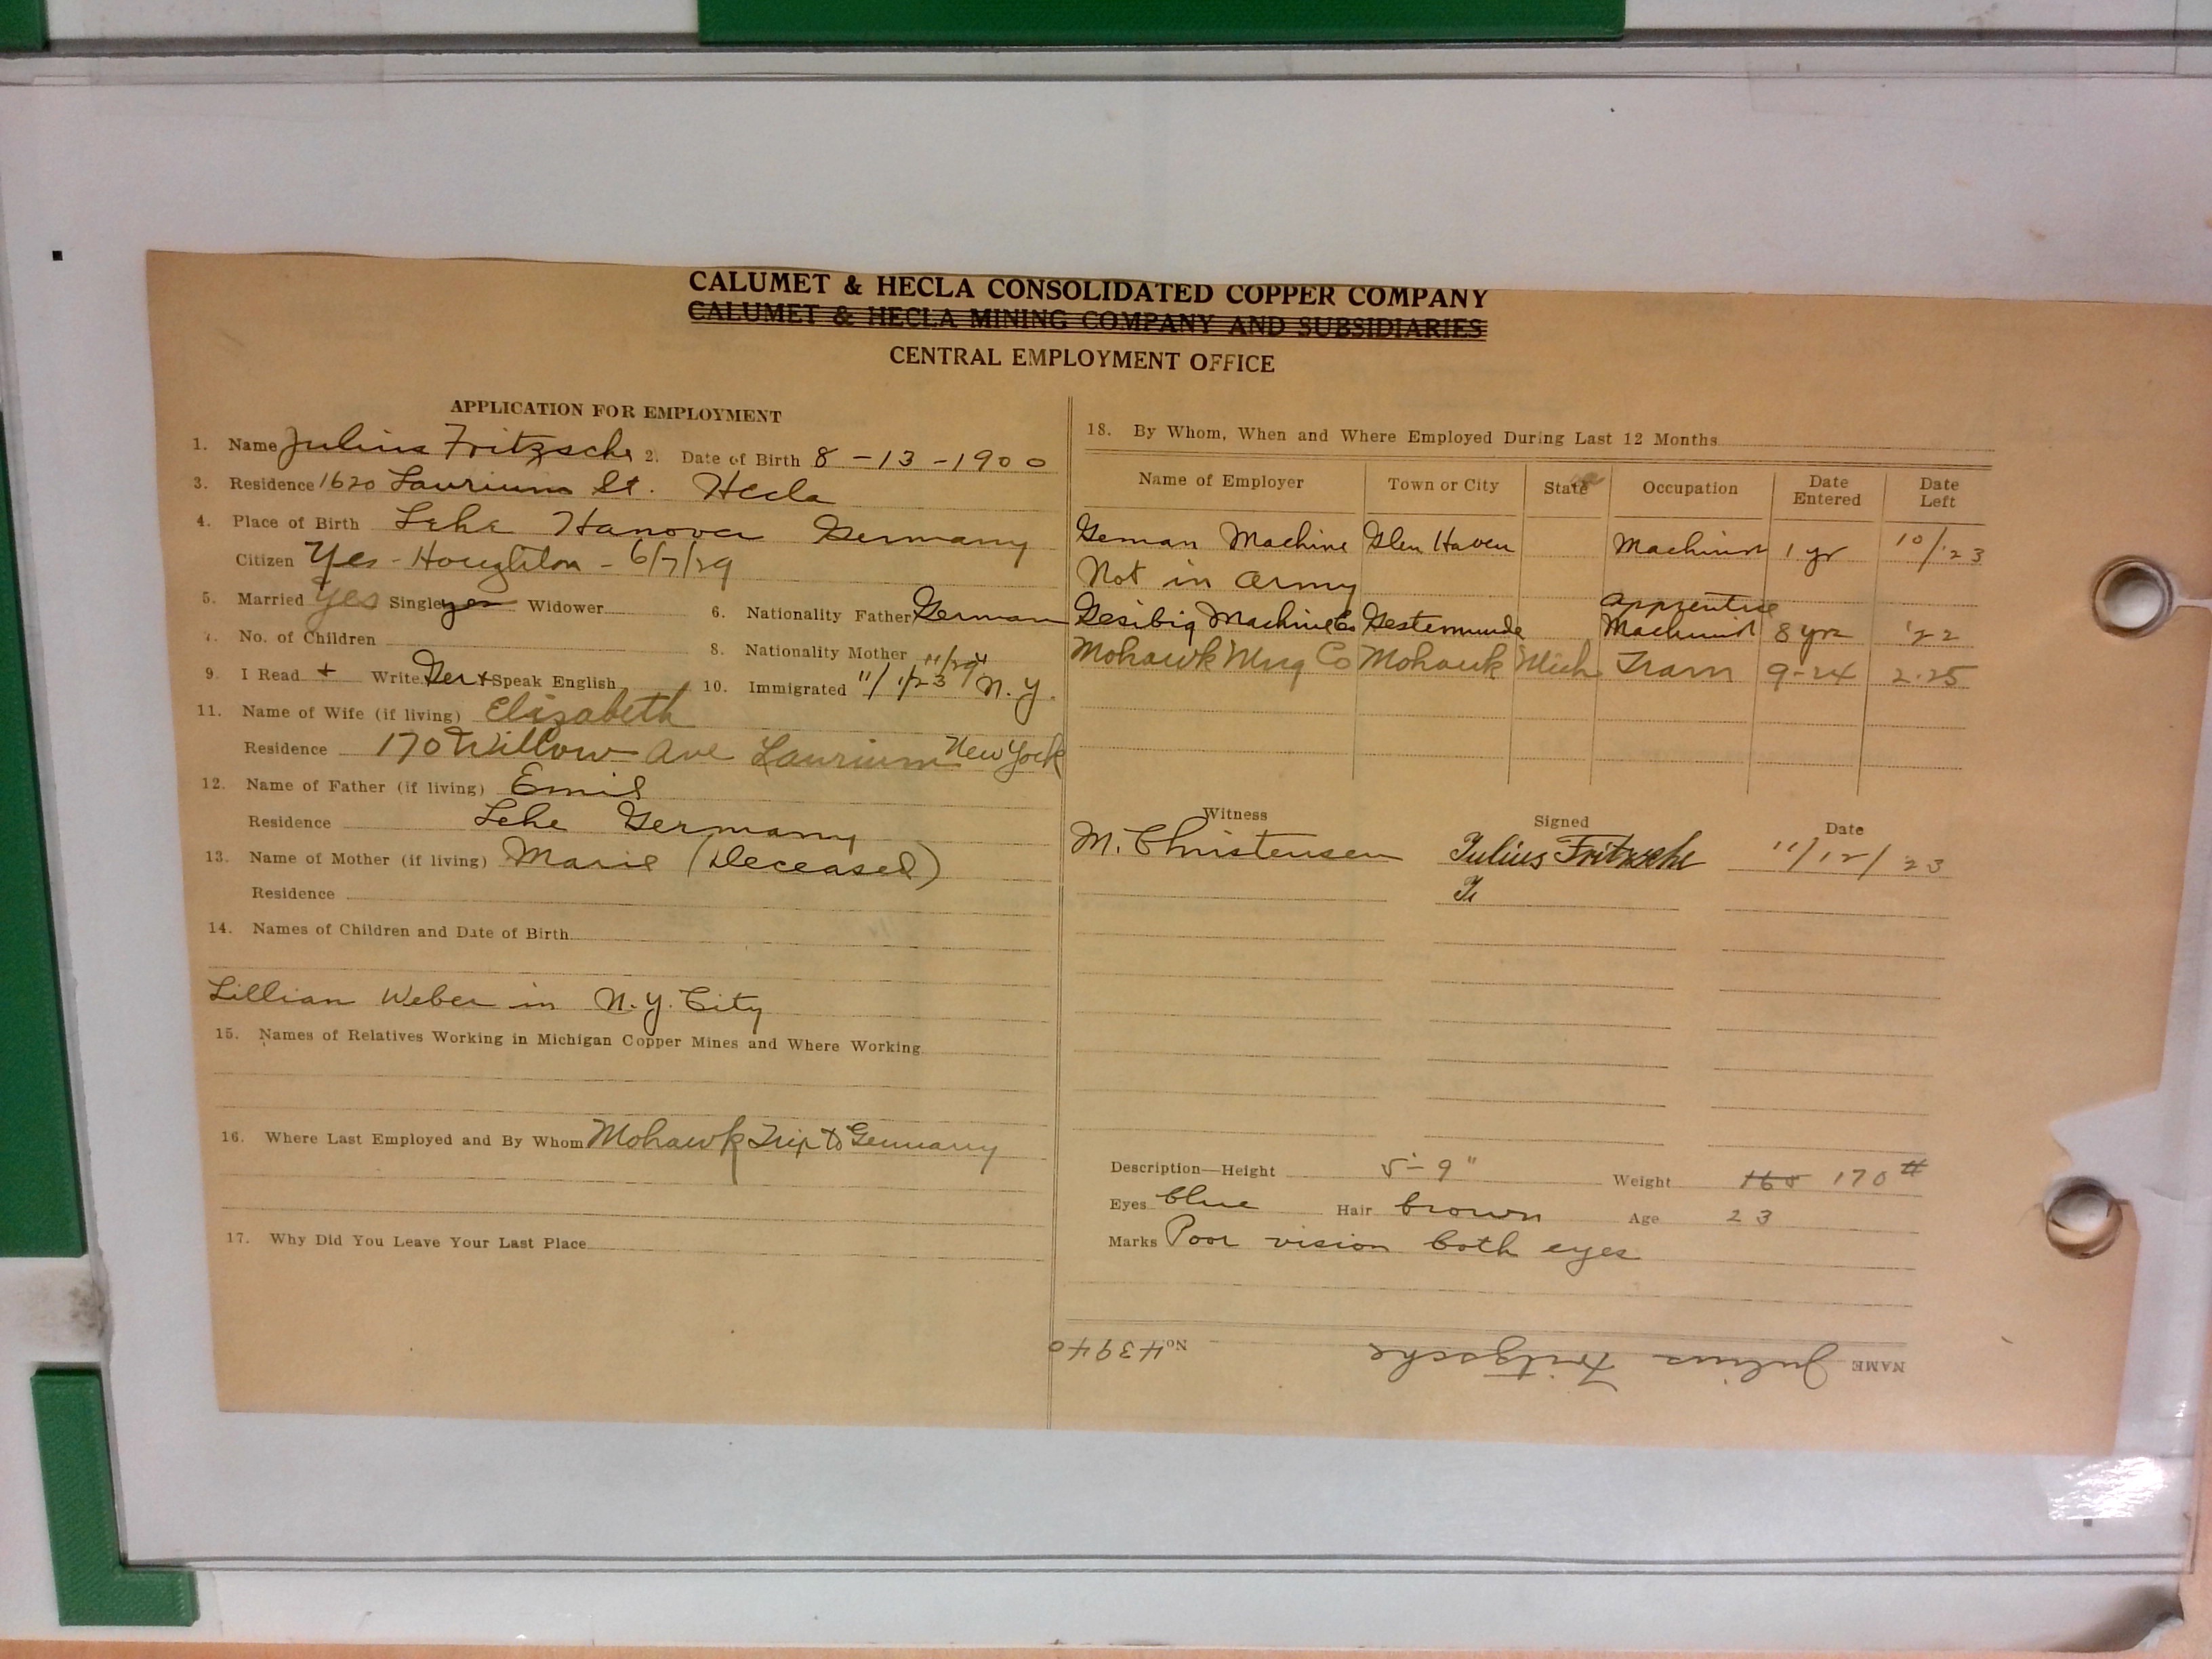 CALUMET & HECLA CONSOLIDATED COPPER COMPANY
CALUMET & HECLA MINING COMPANY AND SUBSIDIARIES
CENTRAL EMPLOYMENT OFFICE
APPLICATION FOR EMPLOYMENT
1. Name Julius Fritzsche 2. Date of Birth 8-13-1900
3. Residence 1620 Laurium St. Hecla
4. Place of Birth Lehe Hanover Germany
Citizen Yes - Houghton - 6/7/29
5. Married yes Single yes Widower 6. Nationality Father German
7. No. of Children 8. Nationality Mother "
9. I Read + Write Ger + Speak English 10. Immigrated 11/1/23 11/29 N.Y.
11. Name of Wife (if living) Elizabeth
Residence 170 Willow Ave Laurium New York
12. Name of Father (if living) Emil
Residence Lehe Germany
13. Name of Mother (if living) Marie (Deceased)
Residence
14. Names of Children and Date of Birth
Lillian Weber in N.Y. City
15. Names of Relatives Working in Michigan Copper Mines and Where Working
16. Where Last Employed and By Whom Mohawk Trip to Germany
17. Why Did You Leave Your Last Place
18. By Whom, When and Where Employed During Last 12 Months
Name of Employer Town or City State Occupation Date Entered Date Left
Geman Machine Glen Haven Machinist 1 yr 10/'23
Not in Army
Apprentice
Machine Co Gestemunde Machinist 8 yrs '22
Mohawk Mng Co Mohawk Mich Tram 9-24 2-25
Witness Signed Date
M. Christensen Julius Fritzsche 11/12/23
Description—Height 5'-9" Weight 165 170#
Eyes blue Hair brown Age 23
Marks Poor vision both eyes
NAME Julius Fritzsche No. 43940